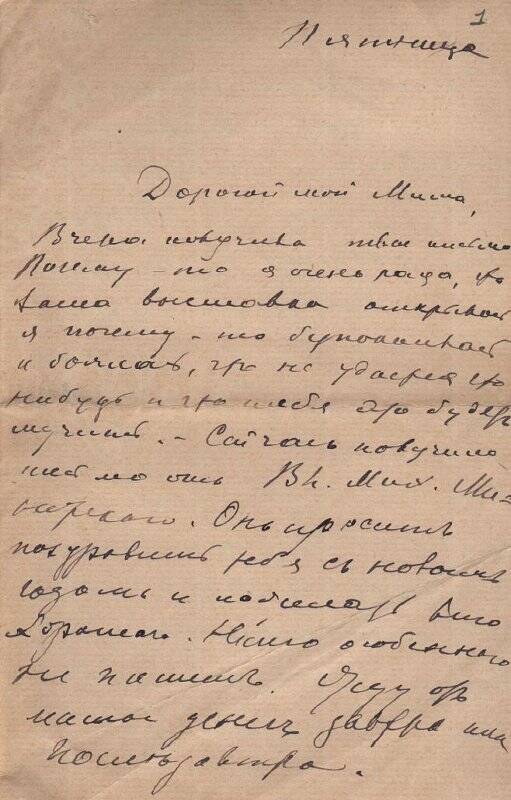 1
Пятница
Дорогой мой Миша,
Вчера получила твое письмо
Почему-то я очень рада, что
ваша выставка открывает
я почему-то
и боялась, что не удастся что
нибудь и что тебя это будет
мучить. – Сейчас получила
письмо отъ Вл. Мих.
Онъ проситъ
поздравить тебя съ новымъ
годомъ и всего
хорошаго. Ничего особеннаго
не пишетъ. Жду отъ
денег завтра или
послѣзавтра.